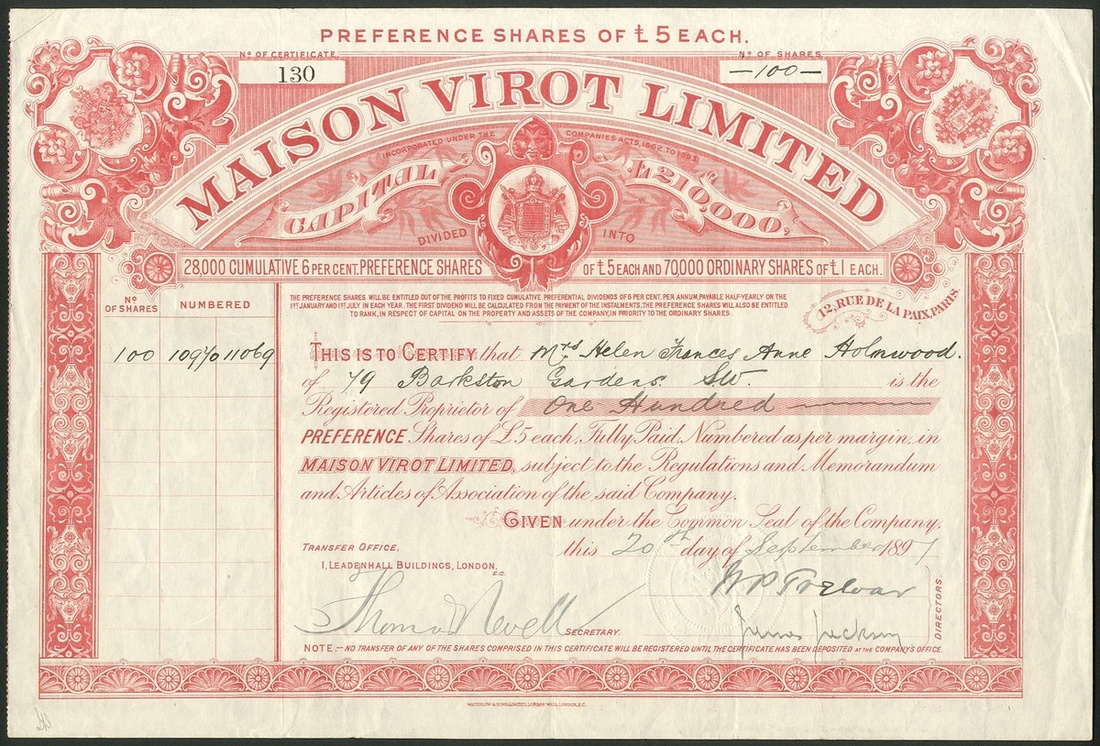 PREFERENCE SHARES OF £5 EACH.
Nº OF CERTIFICATE
130
Nº OF SHARES
—100—
MAISON VIROT LIMITED
INCORPORATED UNDER THE COMPANIES ACTS, 1862 TO 1893.
CAPITAL £210,000,
DIVIDED INTO
28,000 CUMULATIVE 6 PER CENT. PREFERENCE SHARES OF £5 EACH AND 70,000 ORDINARY SHARES OF £1 EACH.
Nº OF SHARES
NUMBERED
100 10970 11069
THE PREFERENCE SHARES WILL BE ENTITLED OUT OF THE PROFITS TO FIXED CUMULATIVE PREFERENTIAL DIVIDENDS OF 6 PER CENT. PER ANNUM, PAYABLE HALF-YEARLY ON THE
1ST JANUARY AND 1ST JULY IN EACH YEAR. THE FIRST DIVIDEND WILL BE CALCULATED FROM THE PAYMENT OF THE INSTALMENTS. THE PREFERENCE SHARES WILL ALSO BE ENTITLED
TO RANK, IN RESPECT OF CAPITAL ON THE PROPERTY AND ASSETS OF THE COMPANY, IN PRIORITY TO THE ORDINARY SHARES.
12, RUE DE LA PAIX, PARIS.
THIS IS TO CERTIFY that Mrs Helen Frances Anne Holmwood.
of 79 Barkston Gardens. SW. is the
Registered Proprietor of One Hundred
PREFERENCE Shares of £5 each, Fully Paid, Numbered as per margin, in
MAISON VIROT LIMITED, subject to the Regulations and Memorandum
and Articles of Association of the said Company.
GIVEN under the Common Seal of the Company,
this 20th day of September 1897
TRANSFER OFFICE,
1, LEADENHALL BUILDINGS, LONDON, E.C.
SECRETARY.
DIRECTORS.
NOTE.— NO TRANSFER OF ANY OF THE SHARES COMPRISED IN THIS CERTIFICATE WILL BE REGISTERED UNTIL THE CERTIFICATE HAS BEEN DEPOSITED AT THE COMPANY'S OFFICE.
WATERLOW & SONS LIMITED, LONDON WALL, LONDON, E.C.